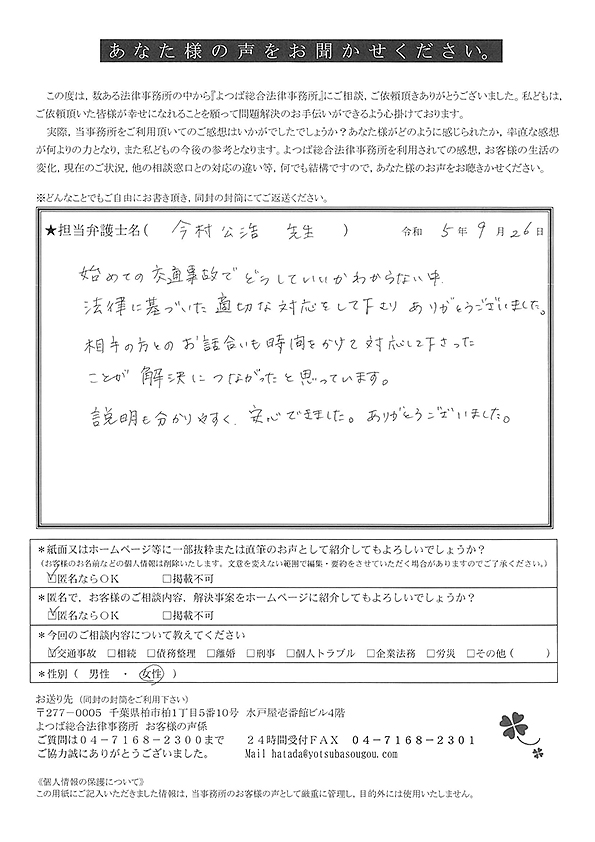 あなた様の声をお聞かせください。
この度は，数ある法律事務所の中から『よつば総合法律事務所』にご相談，ご依頼頂きありがとうございました。私どもは，
ご依頼頂いた皆様が幸せになれることを願って問題解決のお手伝いができるよう心掛けております。
実際，当事務所をご利用頂いてのご感想はいかがでしたでしょうか？あなた様がどのように感じられたか，率直な感想
が何よりの力となり，また私どもの今後の参考となります。よつば総合法律事務所を利用されての感想，お客様の生活の
変化，現在のご状況，他の相談窓口との対応の違い等，何でも結構ですので，あなた様のお声をお聴きかせください。
※どんなことでもご自由にお書き頂き，同封の封筒にてご返送ください。
★担当弁護士名（ 今村公浩 先生 ） 令和 5 年 9 月 26 日
始めての交通事故でどうしていいかわからない中、
法律に基づいた適切な対応をして下さり ありがとうございました。
相手の方とのお話合いも時間をかけて対応して下さった
ことが 解決につながったと思っています。
説明も分かりやすく、安心できました。ありがとうございました。
＊紙面又はホームページ等に一部抜粋または直筆のお声として紹介してもよろしいでしょうか？
（お客様のお名前などの個人情報は削除いたします。文意を変えない範囲で編集・要約をさせていただく場合がありますのでご了承ください。）
☑匿名ならＯＫ □掲載不可
＊匿名で，お客様のご相談内容，解決事案をホームページに紹介してもよろしいでしょうか？
☑匿名ならＯＫ □掲載不可
＊今回のご相談内容について教えてください
☑交通事故 □相続 □債務整理 □離婚 □刑事 □個人トラブル □企業法務 □労災 □その他（ ）
＊性別（ 男性 ・ 女性 ）
お送り先（同封の封筒をご利用下さい）
〒277－0005 千葉県柏市柏1丁目5番10号 水戸屋壱番館ビル4階
よつば総合法律事務所 お客様の声係
ご質問は０４－７１６８－２３００まで ２４時間受付ＦＡＸ ０４－７１６８－２３０１
ご協力誠にありがとうございました。 Mail hatada@yotsubasougou.com
《個人情報の保護について》
この用紙にご記入いただきました情報は，当事務所のお客様の声として厳重に管理し，目的外には使用いたしません。